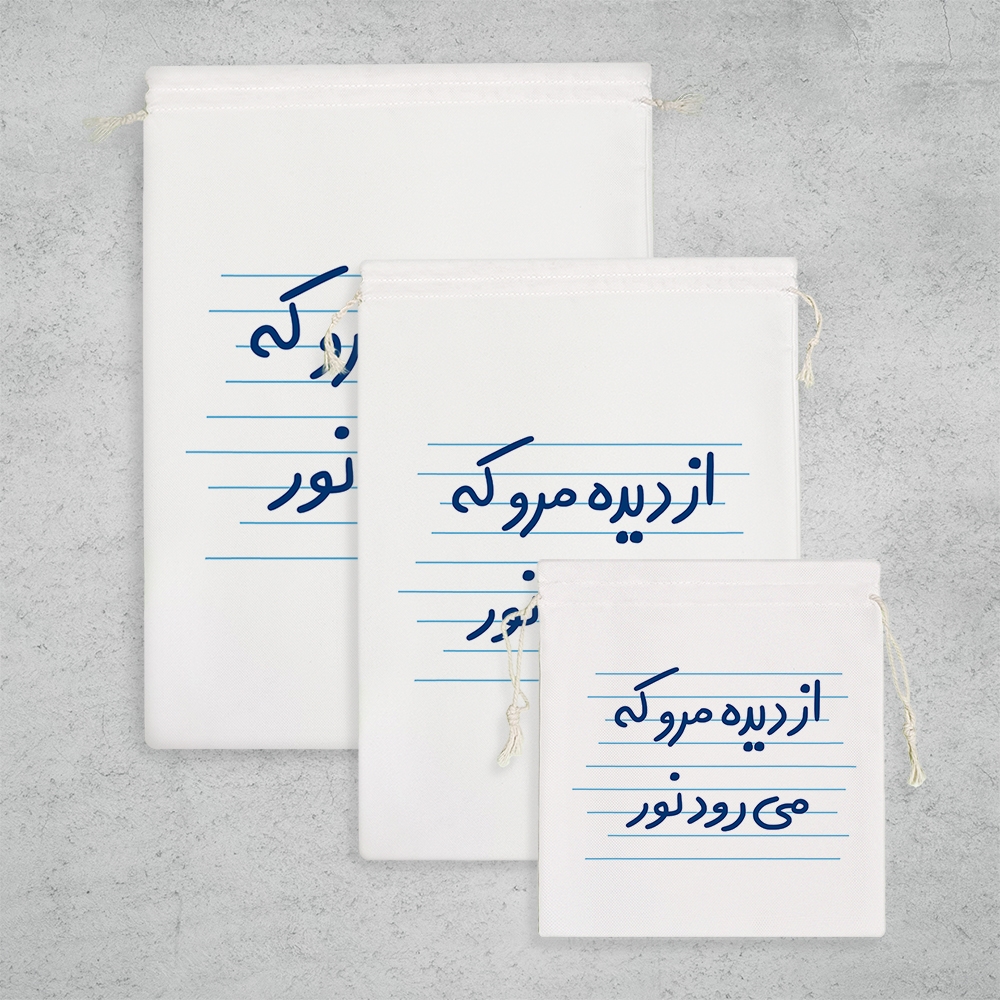 رو که
نور
از دیده مرو که
نور
از دیده مرو که
می‌رود نور